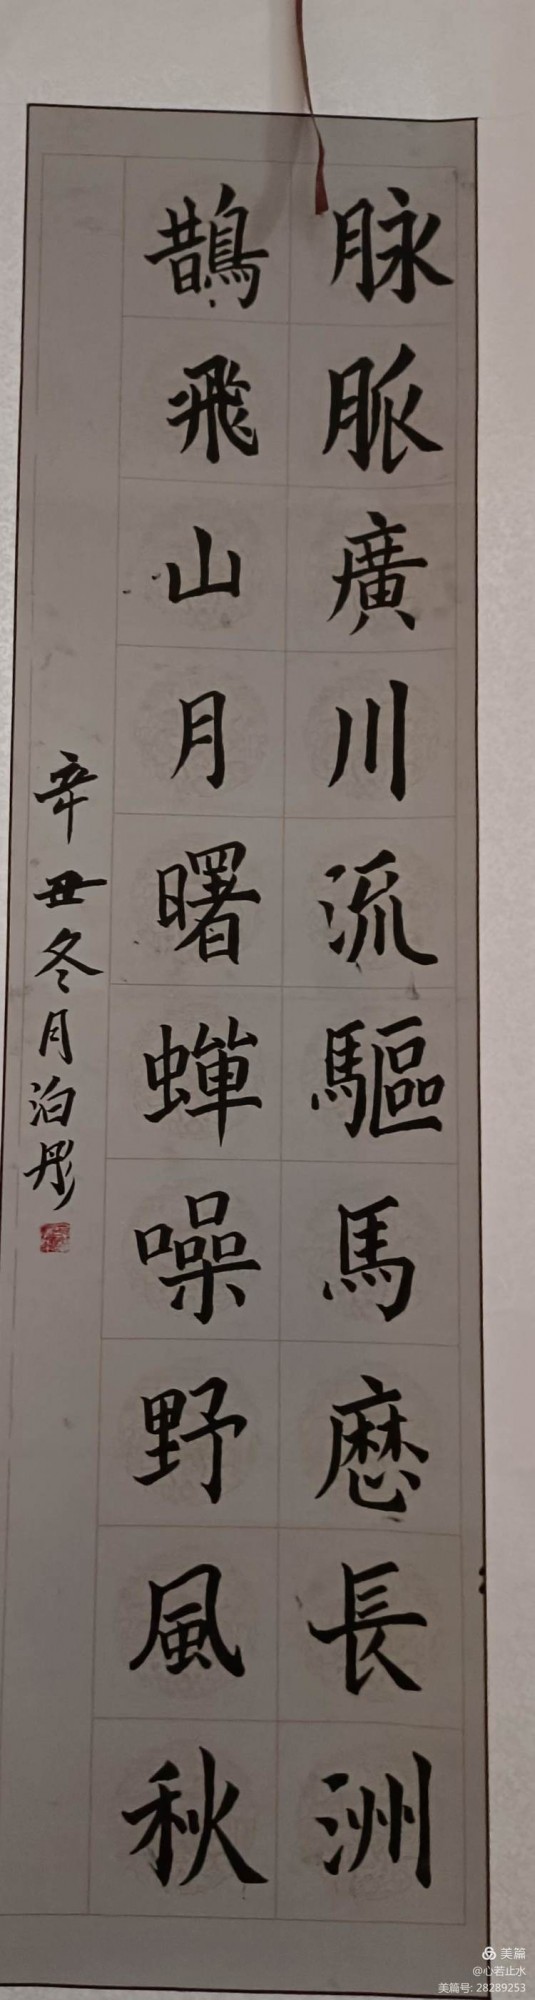 脉脈廣川流驅馬歷長洲
鵲飛山月曙蟬噪野風秋
辛丑冬月泊彤
美篇
@心若止水
美篇号: 28289253